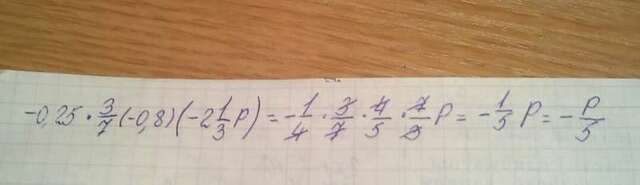 -0,25 · 3/7 (-0,8) (-2 1/3 p) = -1/4 · 3/7 · 4/5 · 7/3 p = -1/5 p = -p/5